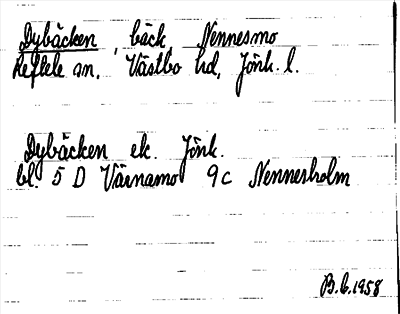 Dybäcken, bäck Nennesmo
Reftele sn. Västbo hd, Jönk. l.
Dybäcken ek. Jönk.
bl. 5 D Värnamo 9c Nennesholm
B.L. 1958